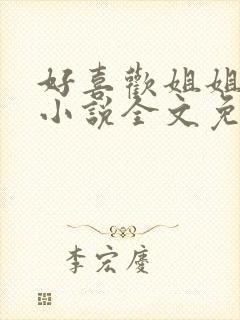 好喜歡姐姐
小說全文免
李宏慶